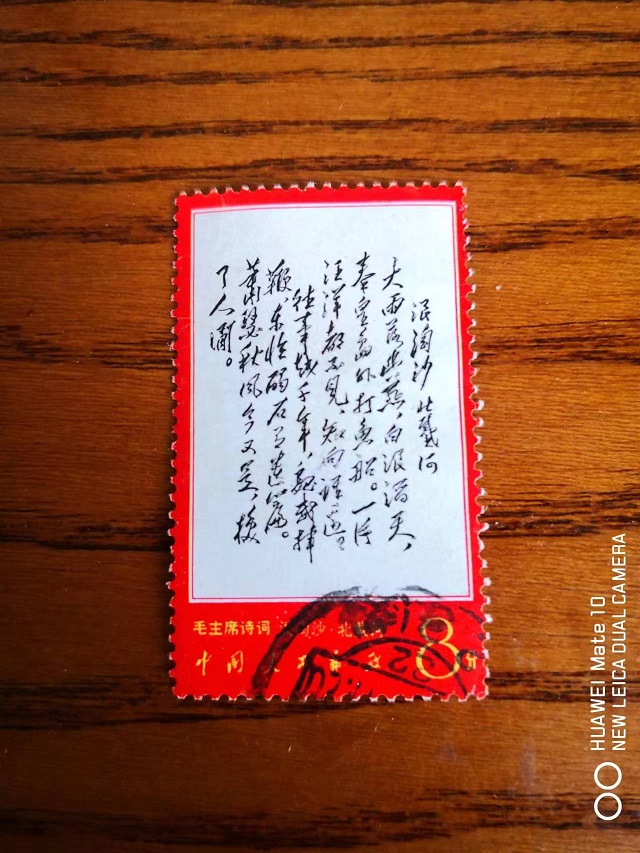 浪淘沙 北戴河
大雨落幽燕,白浪滔天,
秦皇島外打魚船。一片
汪洋都不見,知向誰邊?
往事越千年,魏武揮
鞭,東臨碣石有遺篇。
蕭瑟秋風今又是,換
了人間。
毛主席诗词 沙·北
中国 邮政 8分
HUAWEI Mate 10
NEW LEICA DUAL CAMERA